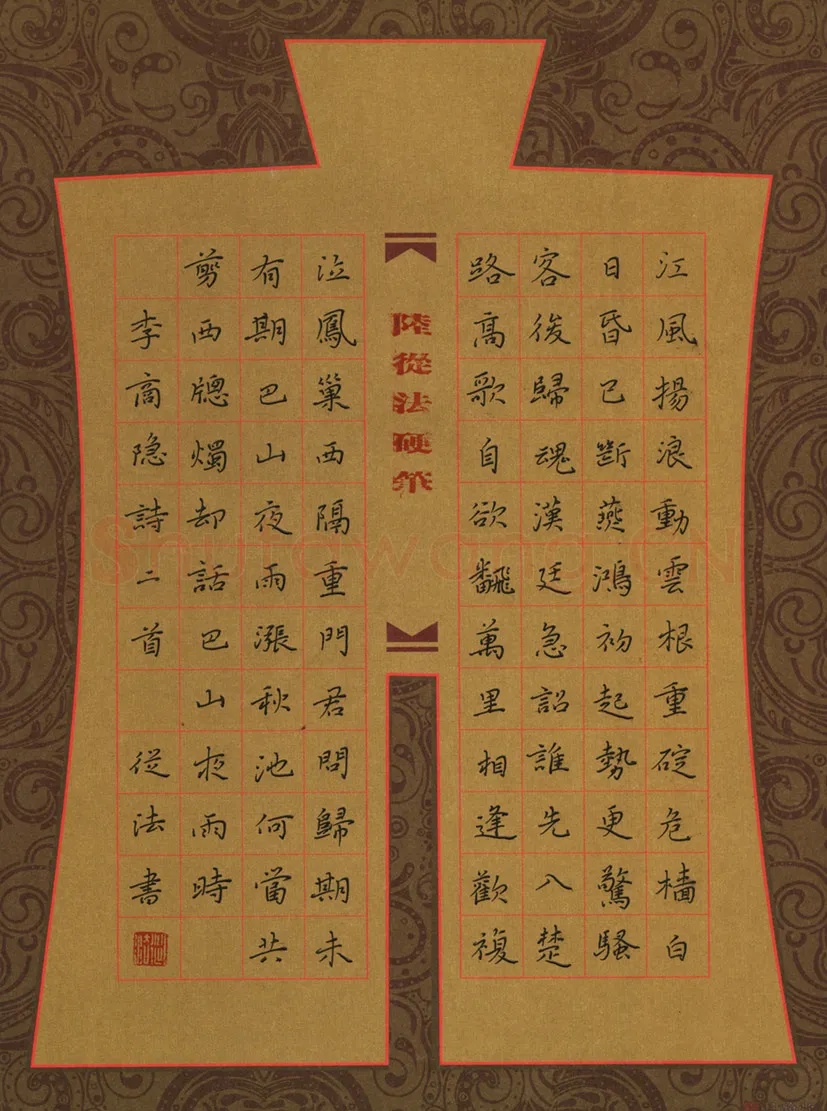 江風揚浪動雲根重碇危檣白
日昏已斷燕鴻初起勢更驚騷
客後歸魂漢廷急詔誰先入楚
路高歌自欲飜萬里相逢歡複
陸從法硬筆
泣鳳巢西隔重門君問歸期未
有期巴山夜雨漲秋池何當共
剪西牕燭却話巴山夜雨時
李商隐詩二首 從法書